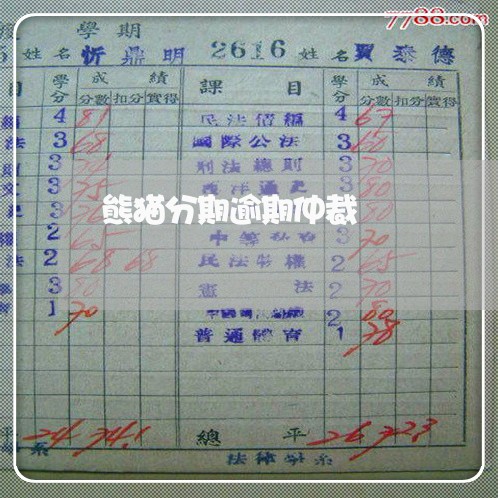 7788.com
學期
姓名 忻鼎明 2616 姓名 賈泰德
目 學分 成績 課目 學分 成績
分數 扣分 實得 分數 扣分 實得
4 81 民法債編 4 67
法 3 68 國際公法 3 60
3 刑法總則 3 70
文 3 75 西洋通史 3 80
3
2 65 3 70
法 2 68 68 民法物權 2 65
3 80 憲法 2 70
育 1 70 2 80
普通體育 1 78
平 24 74.1 總平 26 72.3
系 法律學系
熊猫分期逾期仲裁